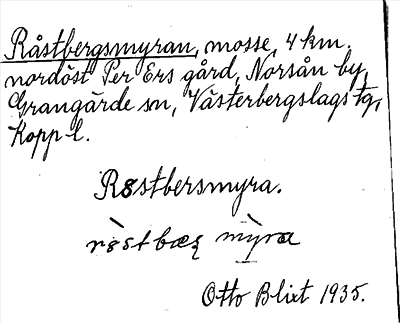 Råstbergsmyran, mosse, 4 km.
nordöst Per Ers gård, Norsån by,
Grangärde sn, Västerbergslags tg,
Kopp l.
Røstbersmyra.
ròstbæꭋ mỳra
Otto Blixt 1935.